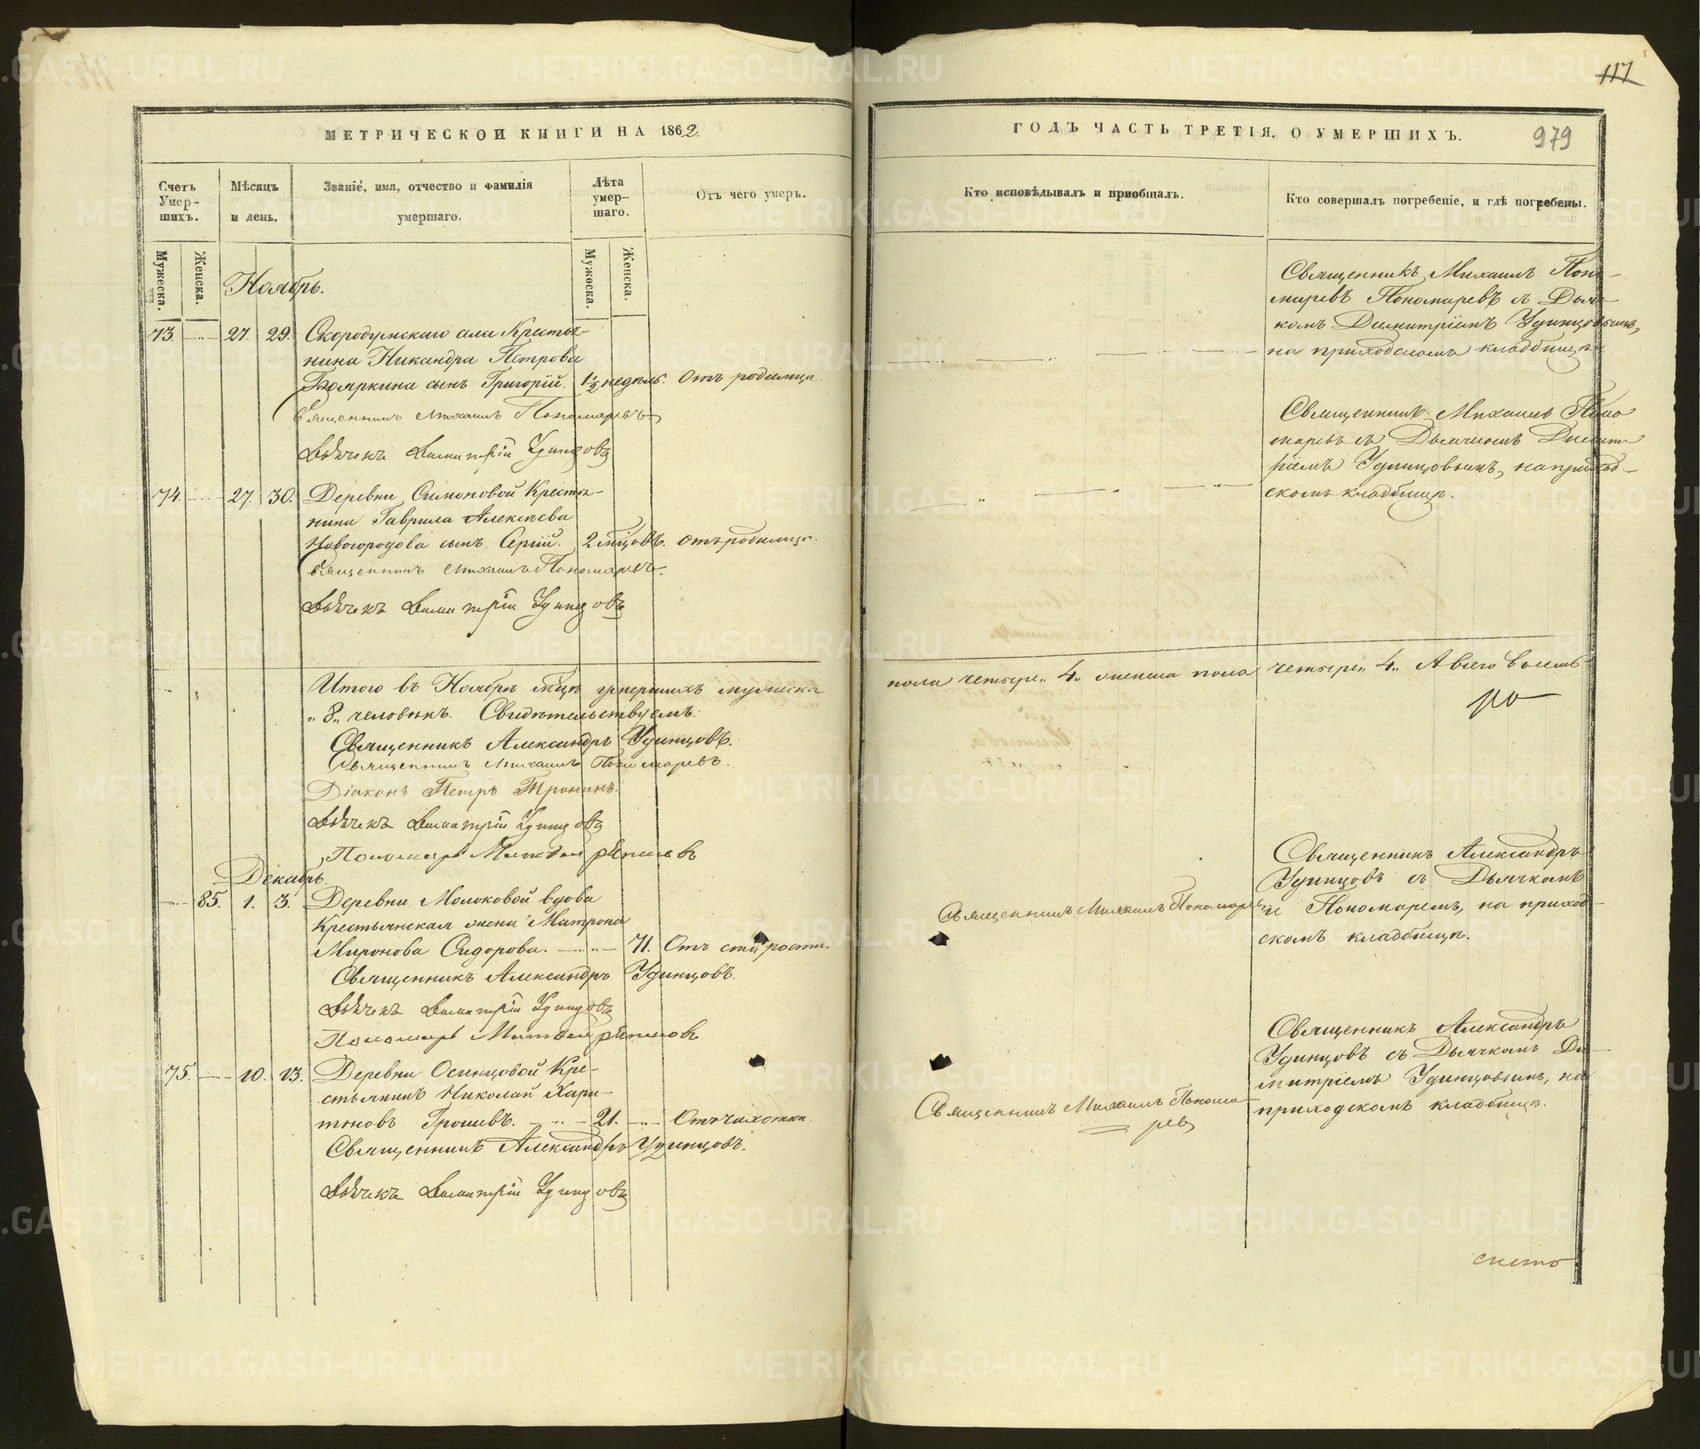 МЕТРИЧЕСКОЙ КНИГИ НА 1862.
Счетъ Умер-шихъ.
Мѣсяцъ и день.
Званіе, имя, отчество и фамилія умершаго.
Лѣта умер-шаго.
Отъ чего умеръ.
Мужеска.
Женска.
Мужеска.
Женска.
Ноябрь.
73. 27. 29. Скородумскаго села Кресть-
янина Никандра Петрова
сынъ Григорій. 1½ недѣль. Отъ родимца.
Священникъ Михаилъ Пономаревъ
Дьячекъ Димитрій Удинцовъ
74. 27. 30. Деревни Симоновой Кресть-
янина Гаврила Алексѣева
Новогородова сынъ Сергій. 2 мѣсцовъ. Отъ родимца.
Священникъ Михаилъ Пономаревъ.
Дьячекъ Димитрій Удинцовъ
Итого въ Ноябрѣ мѣсцѣ умершихъ мужеска
„8„ человѣкъ. Свидѣтельствуемъ:
Священникъ Александръ Удинцовъ.
Священникъ Михаилъ Пономаревъ.
Діаконъ Петръ Тронинъ.
Дьячекъ Димитрій Удинцовъ
Пономарь Матвей Рѣпинъ
Декабрь.
85. 1. 3. Деревни Молоковой вдова
Крестьянская жена Матрона
Миронова Сидорова. 71. Отъ старости.
Священникъ Александръ Удинцовъ.
Дьячекъ Димитрій Удинцовъ
Пономарь Матвей
75. 10. 13. Деревни Осинцовой Кре-
стьянинъ Николай Хари-
тоновъ Грошевъ. 21. Отъ чахотки.
Священникъ Александръ Удинцовъ.
Дьячекъ Димитрій Удинцовъ
117
ГОДЪ ЧАСТЬ ТРЕТІЯ, О УМЕРШИХЪ.
979
Кто исповѣдывалъ и пріобщалъ.
Кто совершалъ погребеніе, и гдѣ погребены.
Священникъ Михаилъ Поно-
маревъ Пономаревъ съ Дьяч-
комъ Димитріемъ Удинцовымъ,
на приходскомъ кладбищѣ
Священникъ Михаилъ Поно
маревъ съ Дьячкомъ Димит
ріемъ Удинцовымъ, на приход-
скомъ кладбищѣ.
пола четыре„ 4„ женска пола четыре„ 4„ А всего восемь
Священникъ Михаилъ Пономаревъ
Священникъ Александръ
Удинцовъ съ Дьячкомъ
и Пономаремъ, на приход-
скомъ кладбищѣ.
Священникъ Михаилъ Понома
ревъ
Священникъ Александръ
Удинцовъ съ Дьячкомъ Ди-
митріемъ Удинцовымъ, на
приходскомъ кладбищѣ.
METRIKI.GASO-URAL.RU